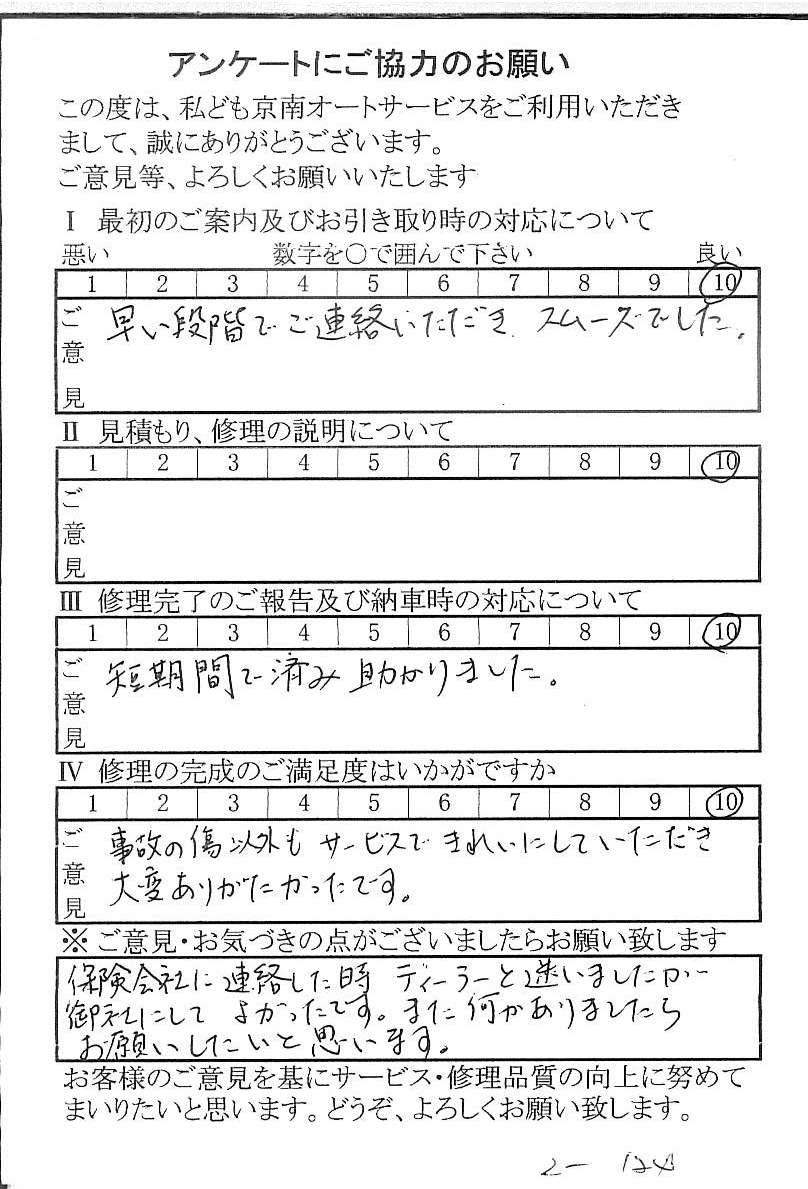 アンケートにご協力のお願い
この度は、私ども京南オートサービスをご利用いただき
まして、誠にありがとうございます。
ご意見等、よろしくお願いいたします
Ⅰ 最初のご案内及びお引き取り時の対応について
悪い 数字を〇で囲んで下さい 良い
1 2 3 4 5 6 7 8 9 10
ご意見
早い段階でご連絡いただき、スムーズでした。
Ⅱ 見積もり、修理の説明について
1 2 3 4 5 6 7 8 9 10
ご意見
Ⅲ 修理完了のご報告及び納車時の対応について
1 2 3 4 5 6 7 8 9 10
ご意見
短期間で済み助かりました。
Ⅳ 修理の完成のご満足度はいかがですか
1 2 3 4 5 6 7 8 9 10
ご意見
事故の傷以外もサービスできれいにしていただき
大変ありがたかったです。
※ ご意見・お気づきの点がございましたらお願い致します
保険会社に連絡した時 ディーラーと迷いましたが
御社にして よかったです。また何かありましたら
お願いしたいと思います。
お客様のご意見を基にサービス・修理品質の向上に努めて
まいりたいと思います。どうぞ、よろしくお願い致します。